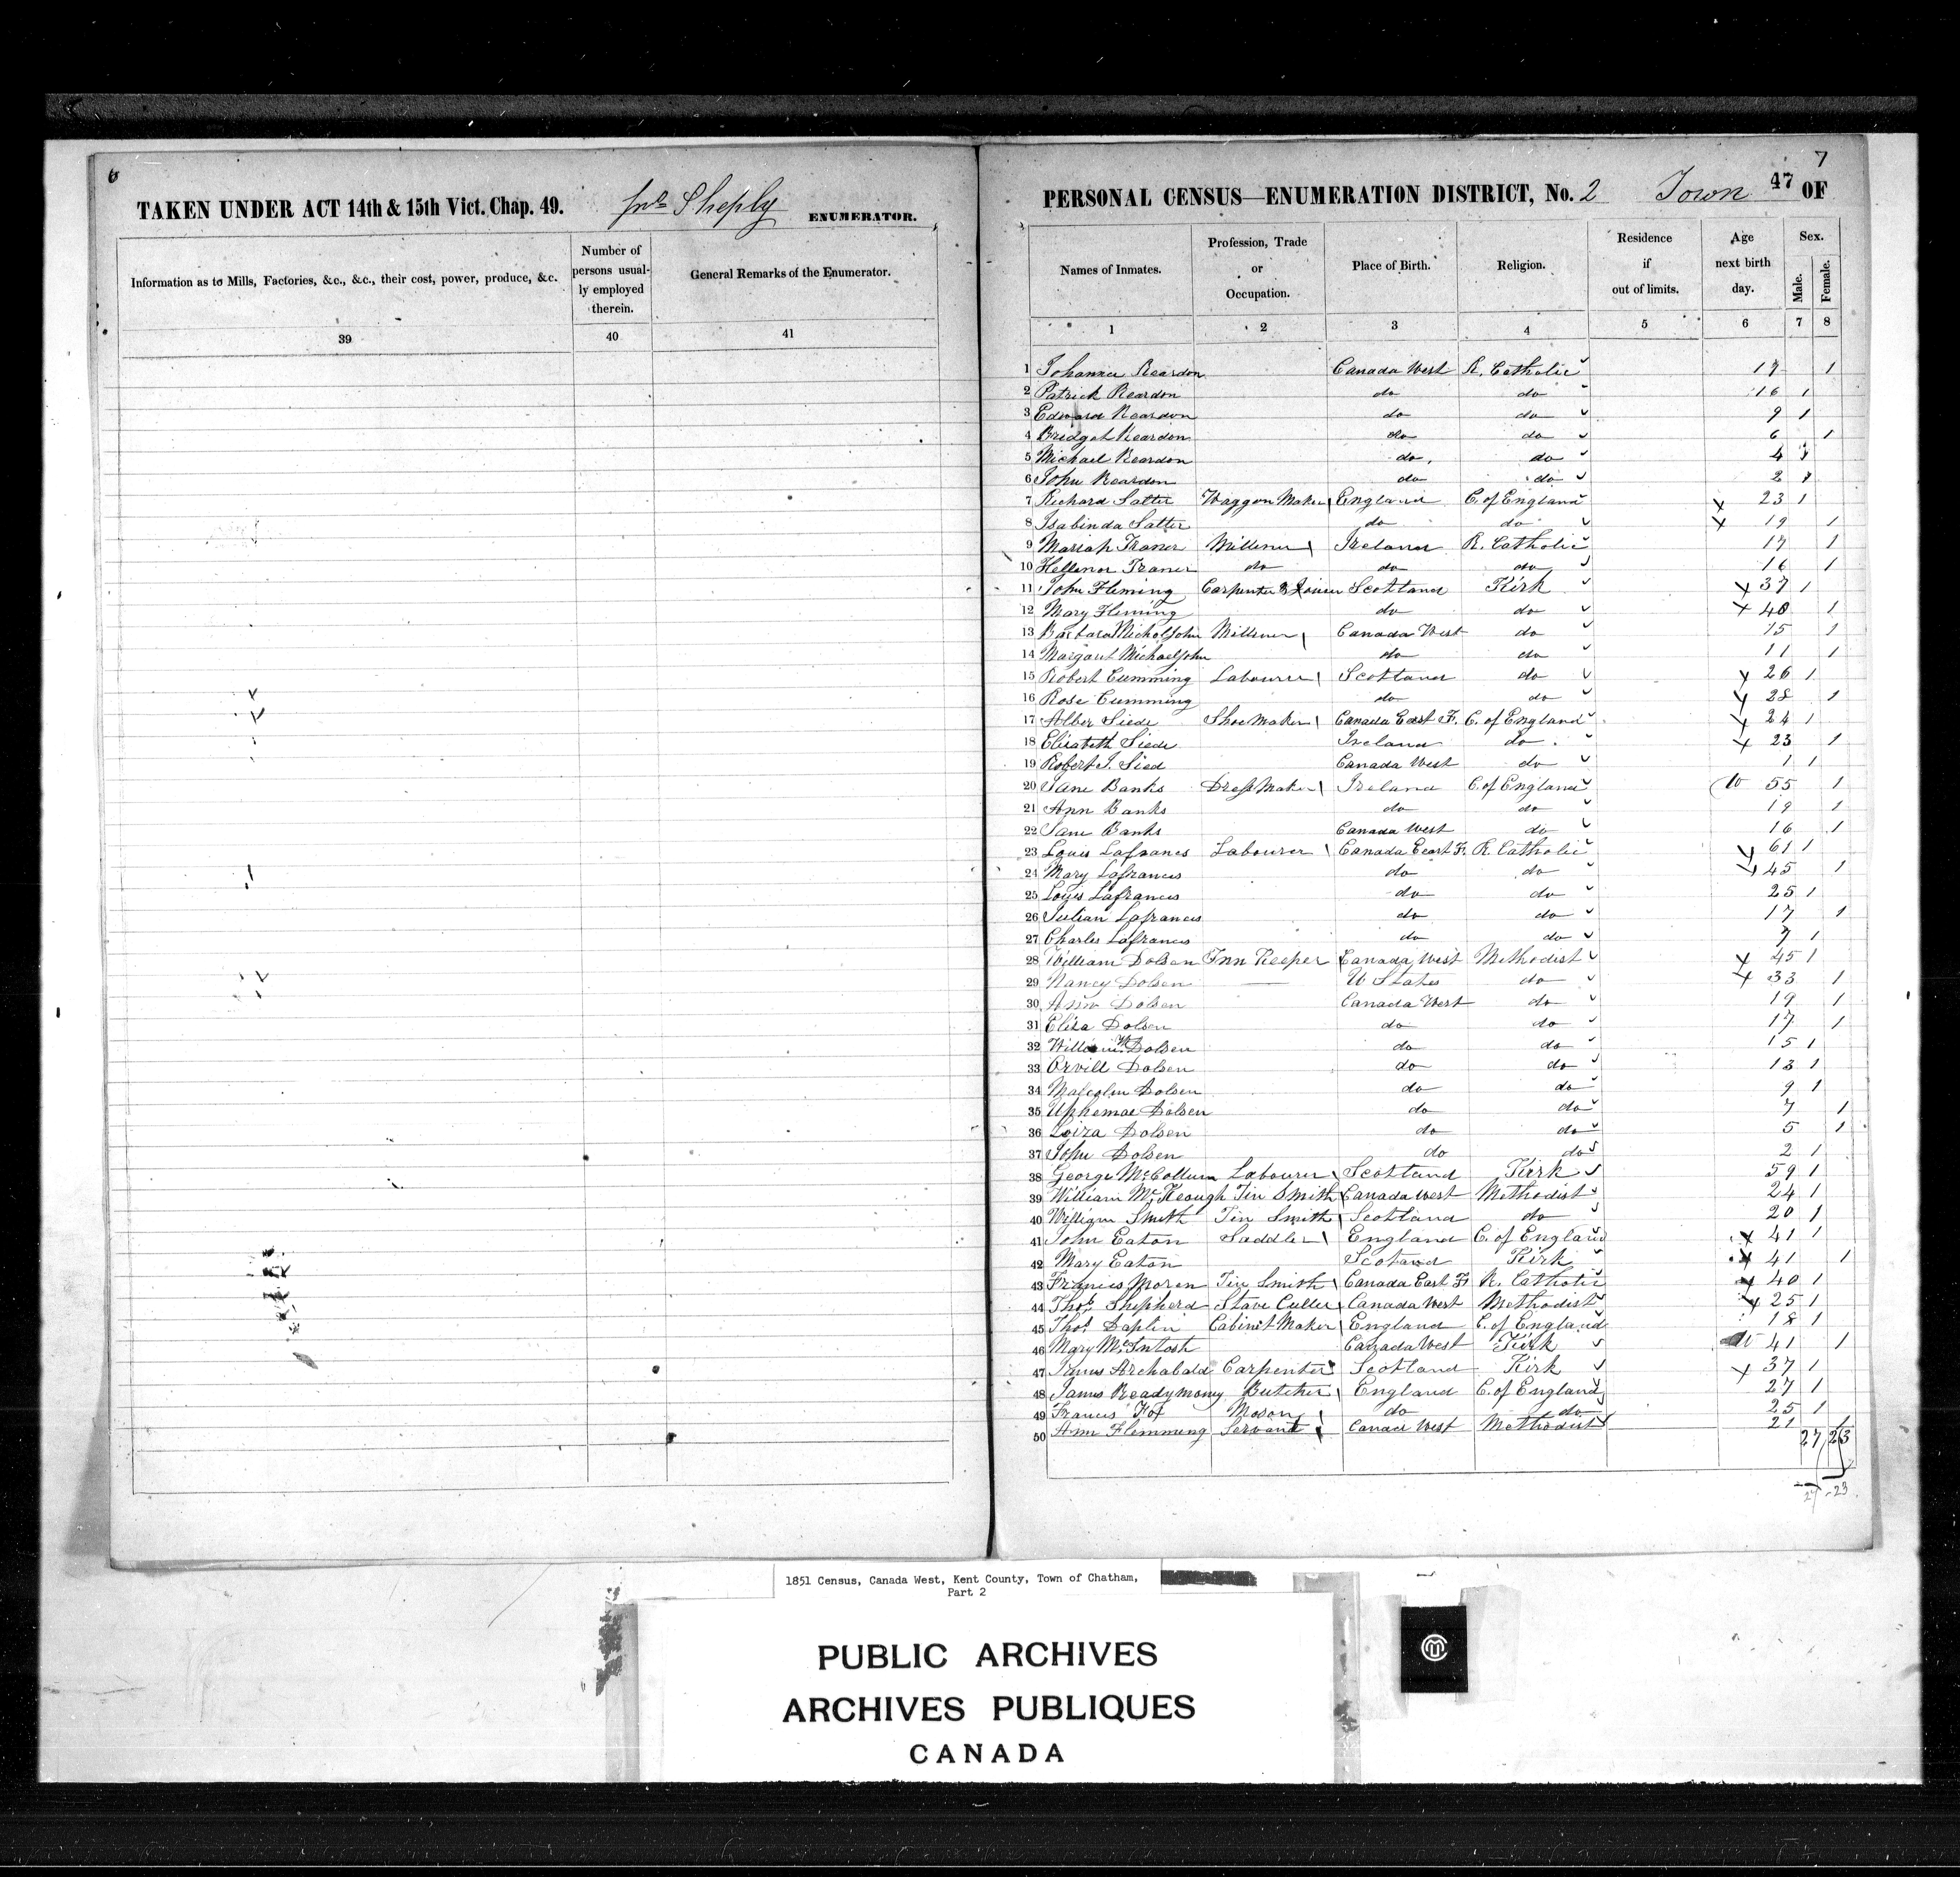 6
TAKEN UNDER ACT 14th & 15th Vict. Chap. 49. Jno Sheply ENUMERATOR.
Information as to Mills, Factories, &c., &c., their cost, power, produce, &c.
Number of persons usually employed therein.
General Remarks of the Enumerator.
39 40 41
7
47
PERSONAL CENSUS—ENUMERATION DISTRICT, No. 2 Town OF
Names of Inmates.
Profession, Trade or Occupation.
Place of Birth.
Religion.
Residence if out of limits.
Age next birth day.
Sex.
Male. Female.
1 2 3 4 5 6 7 8
1 Johanna Reardon Canada West R. Catholic 17 1
2 Patrick Reardon do do 16 1
3 Edward Reardon do do 9 1
4 Bridget Reardon do do 6 1
5 Michael Reardon do do 4 1
6 John Reardon do do 2 1
7 Richard Satter Waggon Maker England C. of England 23 1
8 Isabinda Satter do do 19 1
9 Mariah Traner Milliner Ireland R. Catholic 17 1
10 Hellenor Traner do do do 16 1
11 John Fleming Carpenter & Joiner Scotland Kirk 37 1
12 Mary Fleming do do 40 1
13 Barbara Micholjohn Milliner Canada West do 15 1
14 Margaret Michaeljohn do do 11 1
15 Robert Cumming Labourer Scotland do 26 1
16 Rose Cumming do do 28 1
17 Alber Siede Shoe Maker Canada East F. C. of England 24 1
18 Elizabeth Siede Ireland do 23 1
19 Robert J. Sied Canada West do 1 1
20 Jane Banks Dress Maker Ireland C. of England W 55 1
21 Ann Banks do do 19 1
22 Jane Banks Canada West do 16 1
23 Louis Lafrances Labourer Canada East F. R. Catholic 61 1
24 Mary Lafrances do do 45 1
25 Louis Lafrances do do 25 1
26 Julian Lafrances do do 17 1
27 Charles Lafrances do do 7 1
28 William Dolsen Inn Keeper Canada West Methodist 45 1
29 Nancy Dolsen U States do 33 1
30 Ann Dolsen Canada West do 19 1
31 Eliza Dolsen do do 17 1
32 William W Dolsen do do 15 1
33 Orvill Dolsen do do 13 1
34 Malcolm Dolsen do do 9 1
35 Uphemae Dolsen do do 7 1
36 Loiza Dolsen do do 5 1
37 John Dolsen do do 2 1
38 George McCollum Labourer Scotland Kirk 59 1
39 William McKeough Tin Smith Canada West Methodist 24 1
40 William Smith Tin Smith Scotland do 20 1
41 John Eaton Saddler England C. of England 41 1
42 Mary Eaton Scotland Kirk 41 1
43 Francis Moren Tin Smith Canada East F R. Catholic 40 1
44 Thos Shepherd Stave Culler Canada West Methodist 25 1
45 Thos Daplin Cabinet Maker England C. of England 18 1
46 Mary McIntosh Canada West Kirk W 41 1
47 James Archabald Carpenter Scotland Kirk 37 1
48 James Readymoney Butcher England C. of England 27 1
49 Francis Fox Mason do do 25 1
50 Ann Flemming Servant Canada West Methodist 21 1
27 23
27 - 23
1851 Census, Canada West, Kent County, Town of Chatham,
Part 2
PUBLIC ARCHIVES
ARCHIVES PUBLIQUES
CANADA